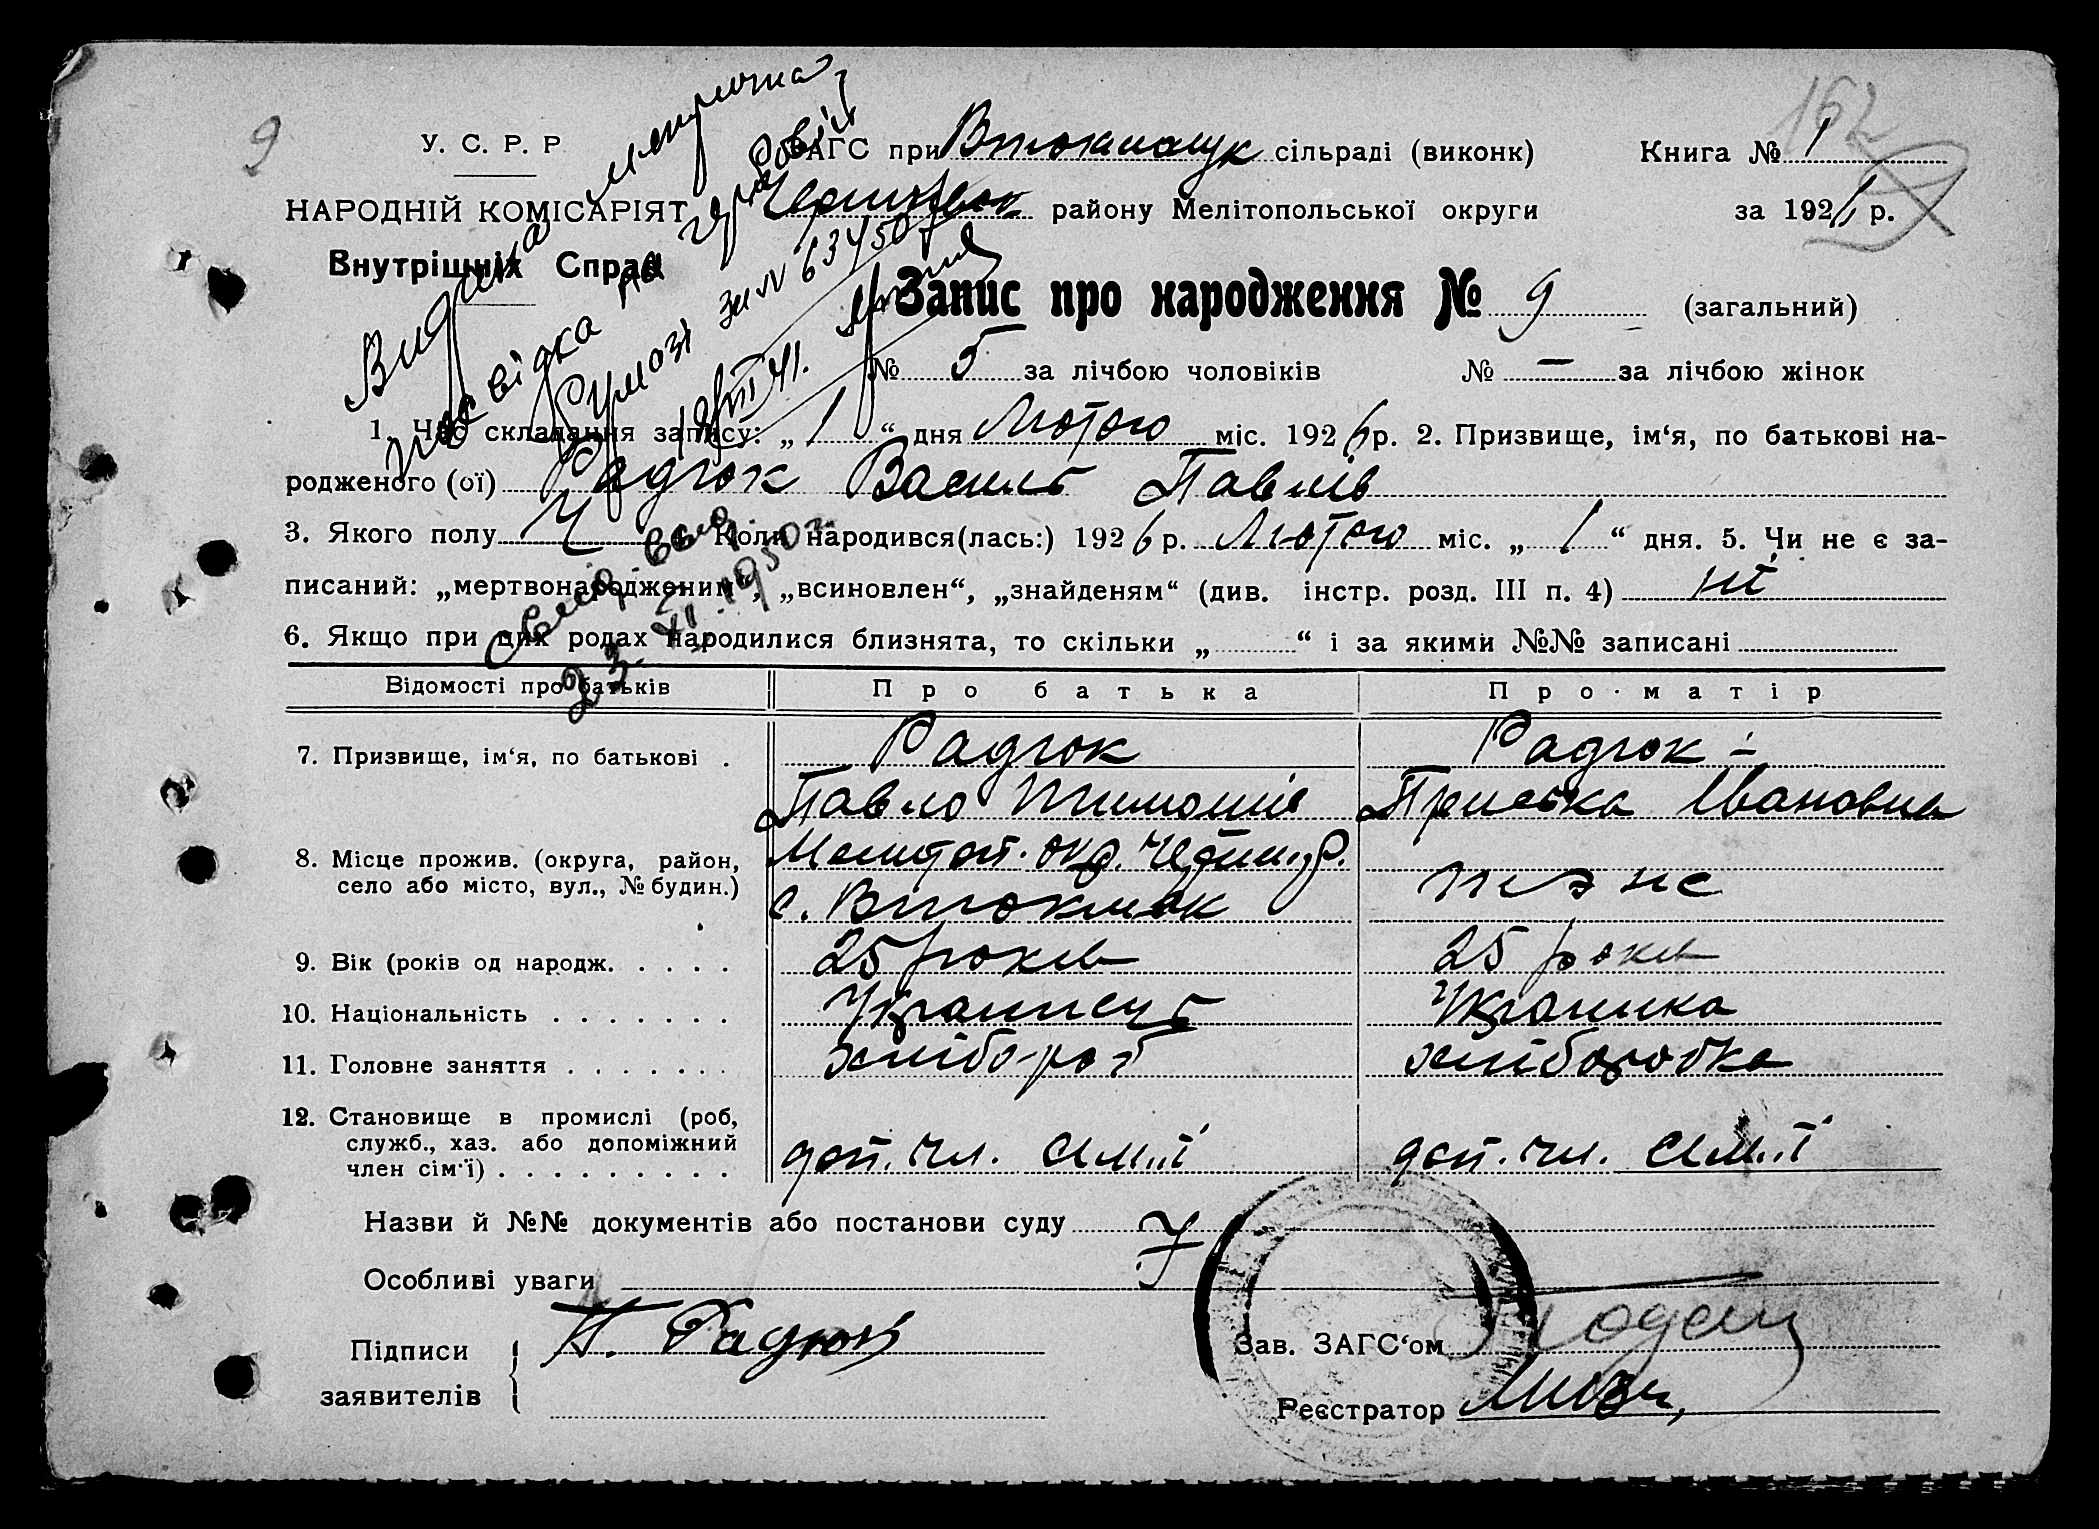 9
162
У. С. Р. Р
ЗАГС при Втокмацук сільраді (виконк) Книга № 1
НАРОДНІЙ КОМІСАРІЯТ району Мелітопольської округи за 1926 р.
Внутрішніх Справ
Видана метрична
посвідка на
за № 63450
Запис про народження № 9 (загальний)
№ 5 за лічбою чоловіків № — за лічбою жінок
1. Час складання запису: „ 1 “ дня Лютого міс. 1926 р. 2. Призвище, ім‘я, по батькові на-
родженого (ої) Радюк Василь Павлів
3. Якого полу Ч Коли народився(лась:) 1926 р. Лютого міс. „ 1 “ дня. 5. Чи не є за-
писаний: „мертвонародженим“, „всиновлен“, „знайденям“ (див. інстр. розд. III п. 4) ні
6. Якщо при цих родах народилися близнята, то скільки „ “ і за якими №№ записані
23 XI 1950 г.
Відомості про батьків Про батька Про матір
7. Призвище, ім‘я, по батькові . Радюк Радюк
Павло Тимошів Пріська Івановна
8. Місце прожив. (округа, район, село або місто, вул., № будин.) Мелитоп. окр. Черниг. р. теж
с. Втокмак
9. Вік (років од народж. . . . . 25 років 25 років
10. Національність . . . . . . . Українець Українка
11. Головне заняття . . . . . . . хлібороб хліборобка
12. Становище в промислі (роб,
служб., хаз. або допоміжний
член сім‘ї) . . . . . . . . . доп. чл. сим.ї доп. чл. сим.ї
Назви й №№ документів або постанови суду
Особливі уваги
Підписи
заявителів П. Радюк
Зав. ЗАГС‘ом
Реєстратор